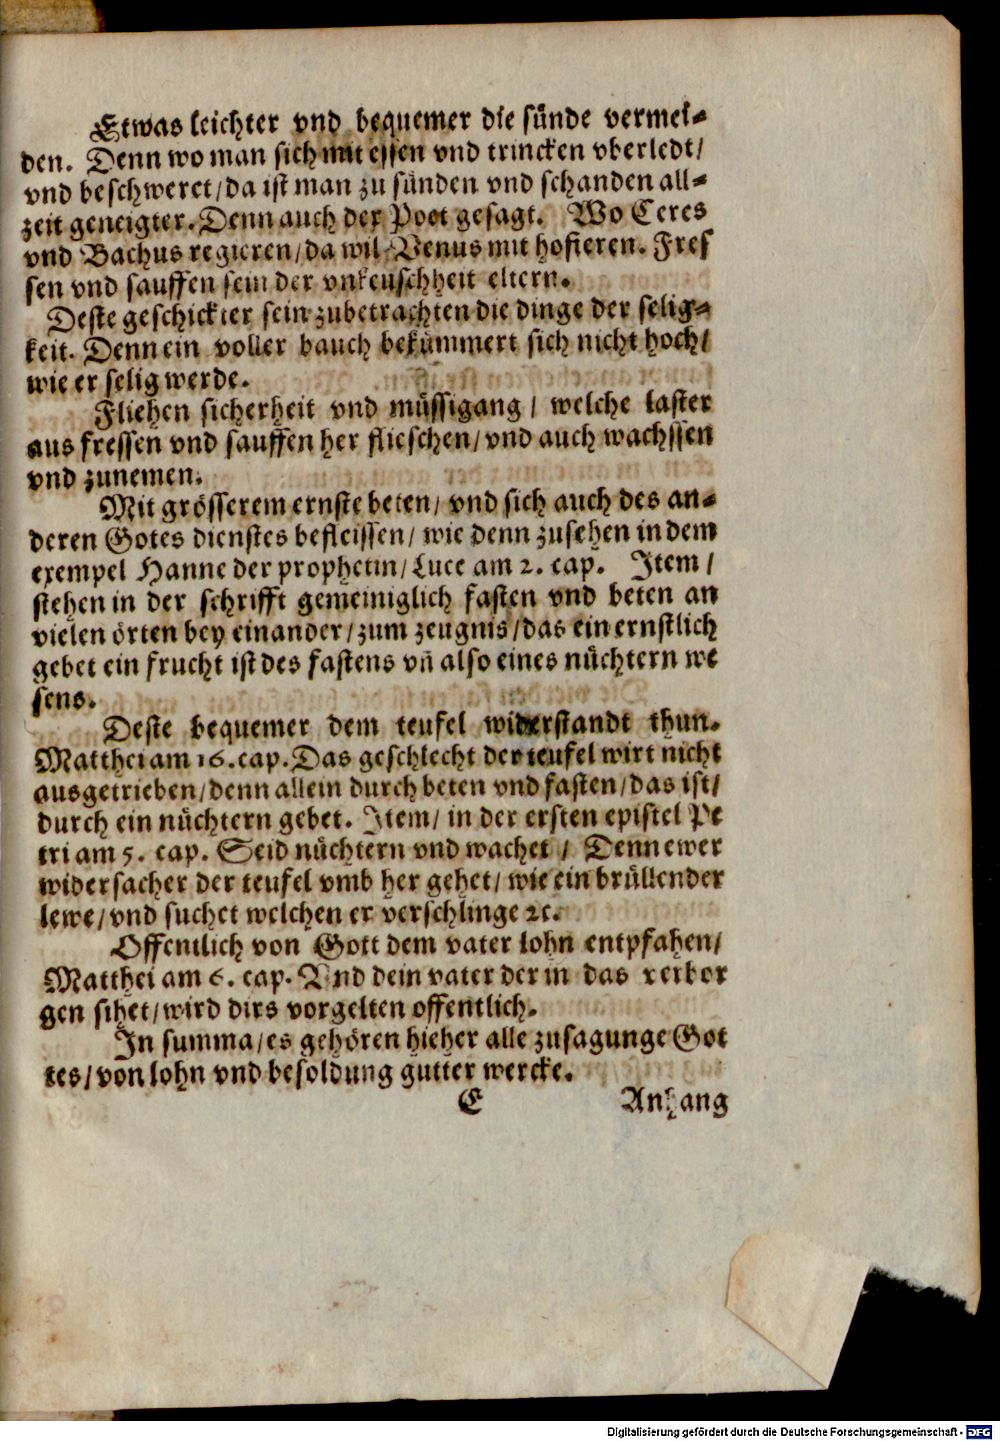 Etwas leichter vnd bequemer die sünde vermei-
den. Denn wo man sich mit essen vnd trincken vberledt/
vnd beschweret/da ist man zu sünden vnd schanden all-
zeit geneigter. Denn auch der Poet gesagt. Wo Ceres
vnd Bachus regieren/da wil Venus mit hofieren. Fres
sen vnd sauffen sein der vnkeuschheit eltern.
Deste geschickter sein zubetrachten die dinge der selig-
keit. Denn ein voller bauch bekümmert sich nicht hoch/
wie er selig werde.
Fliehen sicherheit vnd müssigang/ welche laster
aus fressen vnd sauffen her flieschen/vnd auch wachssen
vnd zunemen.
Mit grösserem ernste beten/ vnd sich auch des an-
deren Gotes dienstes befleissen/ wie denn zusehen in dem
exempel Hanne der prophetin/Luce am 2. cap. Item/
stehen in der schrifft gemeiniglich fasten vnd beten an
vielen örten bey einander/zum zeugnis/das ein ernstlich
gebet ein frucht ist des fastens vn̄ also eines nüchtern we
sens.
Deste bequemer dem teufel widerstandt thun.
Matthei am 16. cap. Das geschlecht der teufel wirt nicht
ausgetrieben/denn allein durch beten vnd fasten/das ist/
durch ein nüchtern gebet. Item/ in der ersten epistel Pe
tri am 5. cap. Seid nüchtern vnd wachet/ Denn ewer
widersacher der teufel vmb her gehet/ wie ein brüllender
lewe/vnd suchet welchen er verschlinge ꝛc.
Offentlich von Gott dem vater lohn entpfahen/
Matthei am 6. cap. Vnd dein vater der in das verbor
gen sihet/wird dirs vorgelten offentlich.
In summa/es gehören hieher alle zusagunge Got
tes/von lohn vnd besoldung gutter wercke.
E Anhang
Digitalisierung gefördert durch die Deutsche Forschungsgemeinschaft - DFG